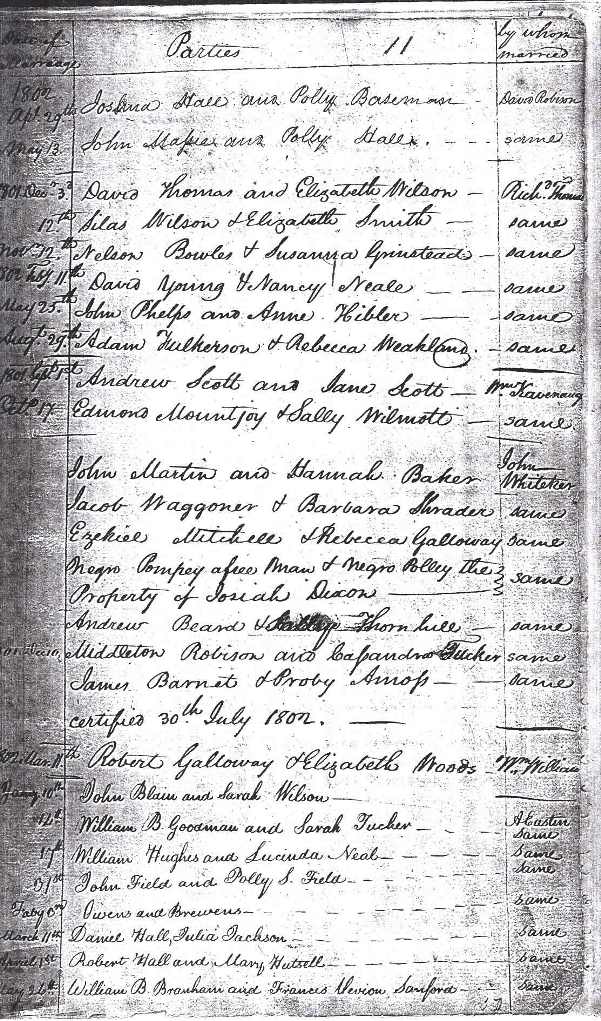 Date of Marriage Parties 11 by whom married
1802
Apl 29th Joshua Hall and Polly Baseman David Robison
May 13 John Magee and Polly Hall same
1801 Decr 3d David Thomas and Elizabeth Wilson Richd Thomas
12th Silas Wilson & Elizabeth Smith same
Novr 12th Nelson Bowles & Susanna Grinstead same
1802 Feby 11th David Young & Nancy Neale same
May 25th John Phelps and Anne Hibler same
Augt 29th Adam Fulkerson & Rebecca Weakland same
1801 Sept 1st Andrew Scott and Jane Scott Wm Kavenaug
Octo 17 Edmond Mountjoy & Sally Wilmott same
John Martin and Hannah Baker John Whiteker
Jacob Waggoner & Barbara Shrader same
Ezekiel Mitchell & Rebecca Galloway same
Negro Pompey a free man & Negro Polley the
Property of Josiah Dixon same
Andrew Beard & Thornhill same
Middleton Robison and Casandra Tucker same
James Barnet & Proby Amoss same
certified 30th July 1802.
1802 Mar. 11th Robert Galloway & Elizabeth Woods Wm William
Jany 10th John Blain and Sarah Wilson
14th William B Goodman and Sarah Tucker A Eastin same
17th William Hughes and Lucinda Neal same
31st John Field and Polly S. Field same
Faby 3rd Owens and Brewens same
March 11th Daniel Hall, Julia Jackson same
April 1st Robert Hall and Mary Hutsell same
May 24th William B. Branham and Frances Sanford same